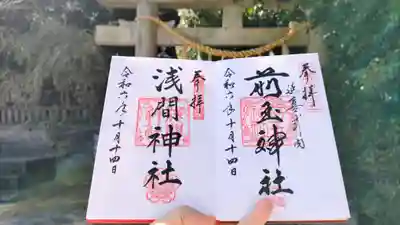 奉拝
前玉神社
令和六年十月十四日
奉拝
浅間神社
令和六年十月十四日